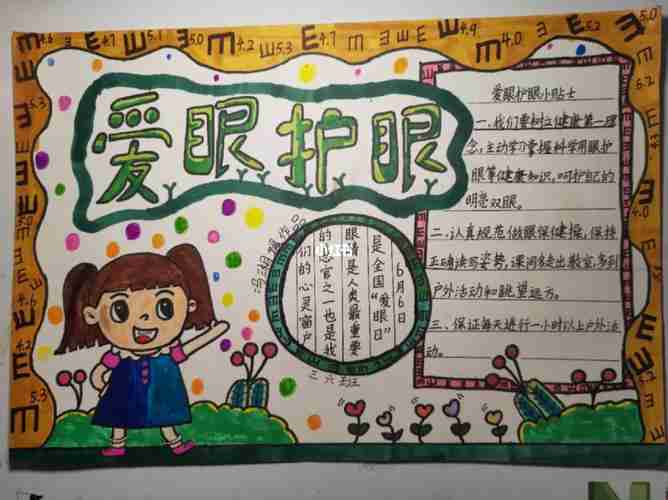 4.6 E 4.7 5.1 5.0 4.2 5.3 E 4.7 E 4.2 4.9 4.0 5.0
爱眼护眼
6月6日
是全国“爱眼日”
眼睛是人类最重要
的感官之一也是我
们的心灵窗户
三六班
爱眼护眼小贴士
一.我们要树立健康第一理
念,主动学习掌握科学用眼护
眼等健康知识,呵护自己的
明亮双眼。
二.认真规范做眼保健操,保持
正确读写姿势,课间多走出教室,多到
户外活动和眺望远方。
三、保证每天进行一小时以上户外活
动。
5.3
5.0
4.6
4.2
5.3